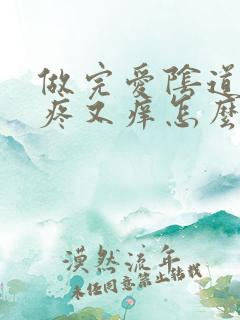 做完爱陰道
疼又痒怎麽
漠然流年
未经同意禁止转载